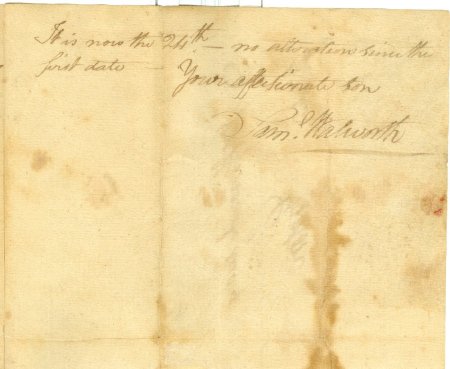 It is now the 24th — no alteration since the
first date — Your affectionate son
Saml. Walworth